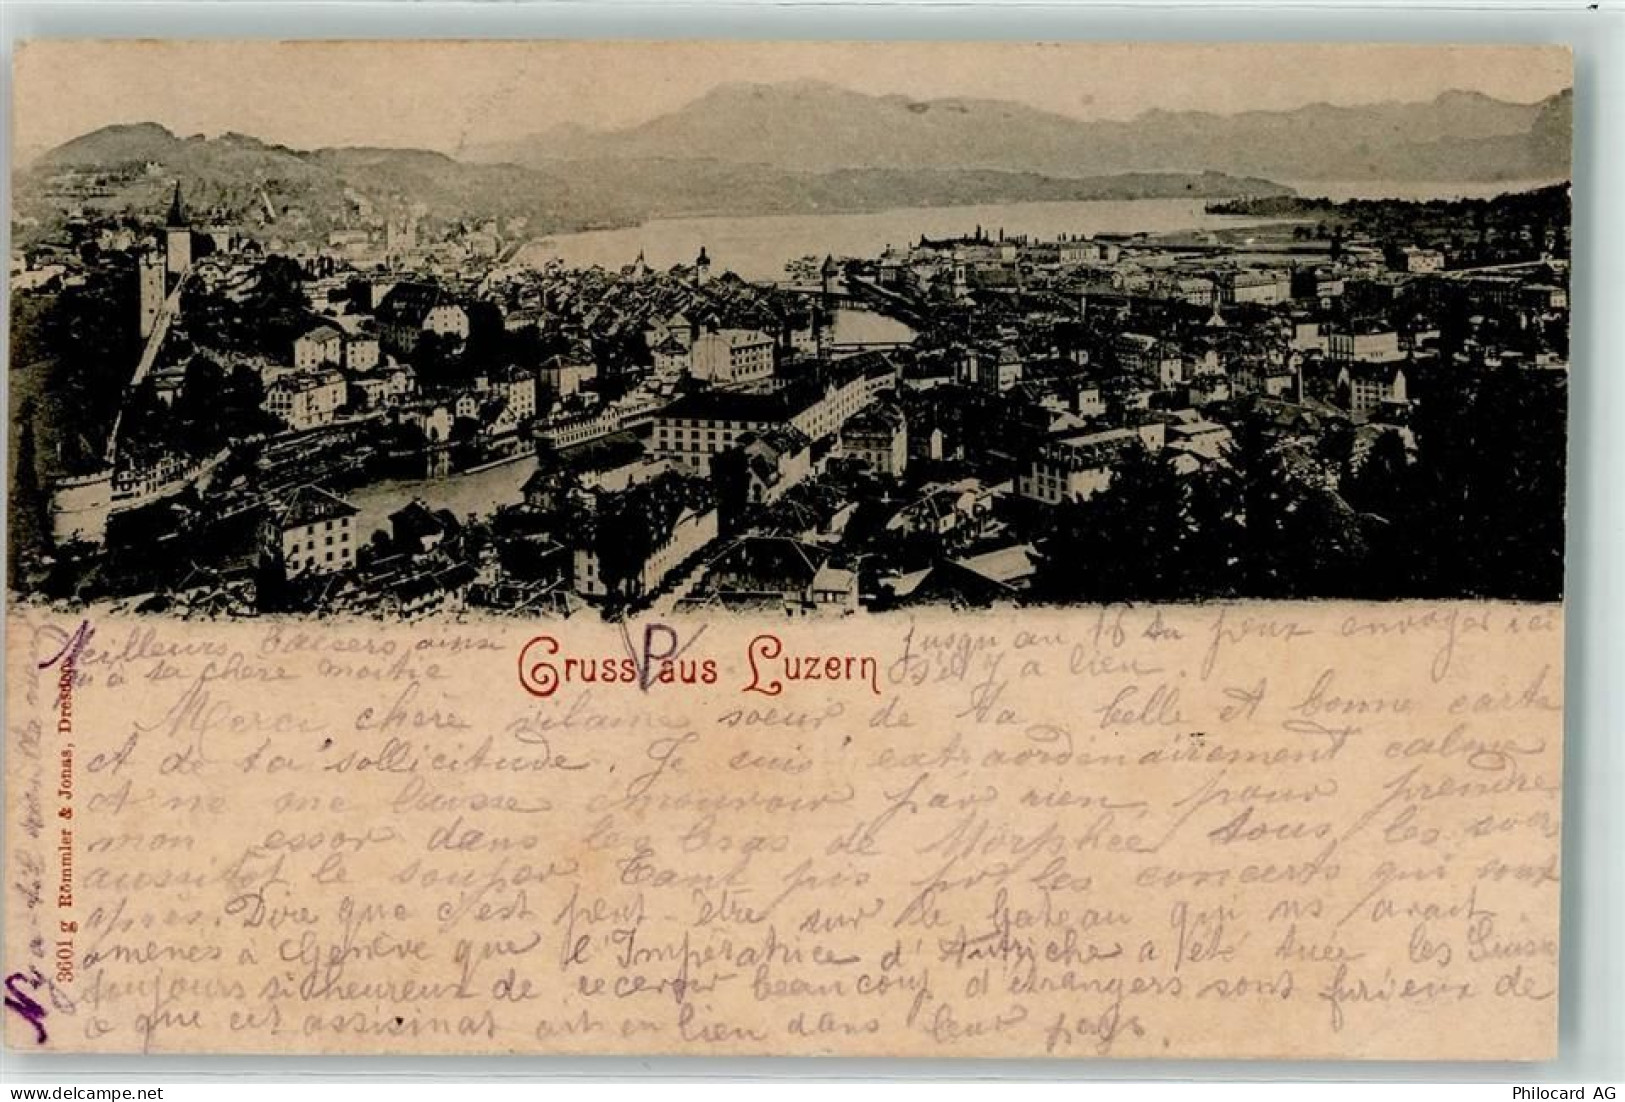 Meilleurs baisers ainsi
qu'à ta chère moitié
Gruss aus Luzern
P
Jusqu'au 18 tu peux envoyer ici
s'il y a lieu.
Merci chère vilaine soeur de ta belle et bonne carte
et de ta sollicitude. Je suis extraordinairement calme
et ne me laisse émouvoir par rien pour prendre
mon essor dans les bras de Morphée tous les soirs
aussitôt le souper Tant pis pr les concerts qui sont
après. Dire que c'est peut-être sur le bateau qui ns avait
amenés à Genève que l'Impératrice d'Autriche a été tuée les Suisses
toujours si heureux de recevoir beaucoup d'étrangers sont furieux de
ce que cet assisinat ait eu lieu dans leur pays.
3601 g Römmler & Jonas, Dresden
N
Philocard AG